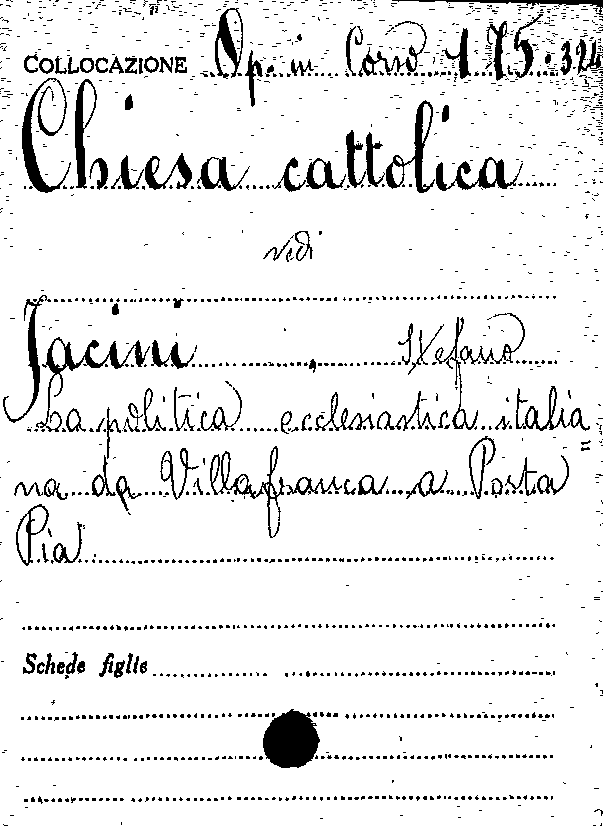 COLLOCAZIONE Op. in Corso 1 75. 324
Chiesa cattolica
vedi
Jacini, Stefano
La politica ecclesiastica italia=
na da Villafranca a Porta
Pia
Schede figlie